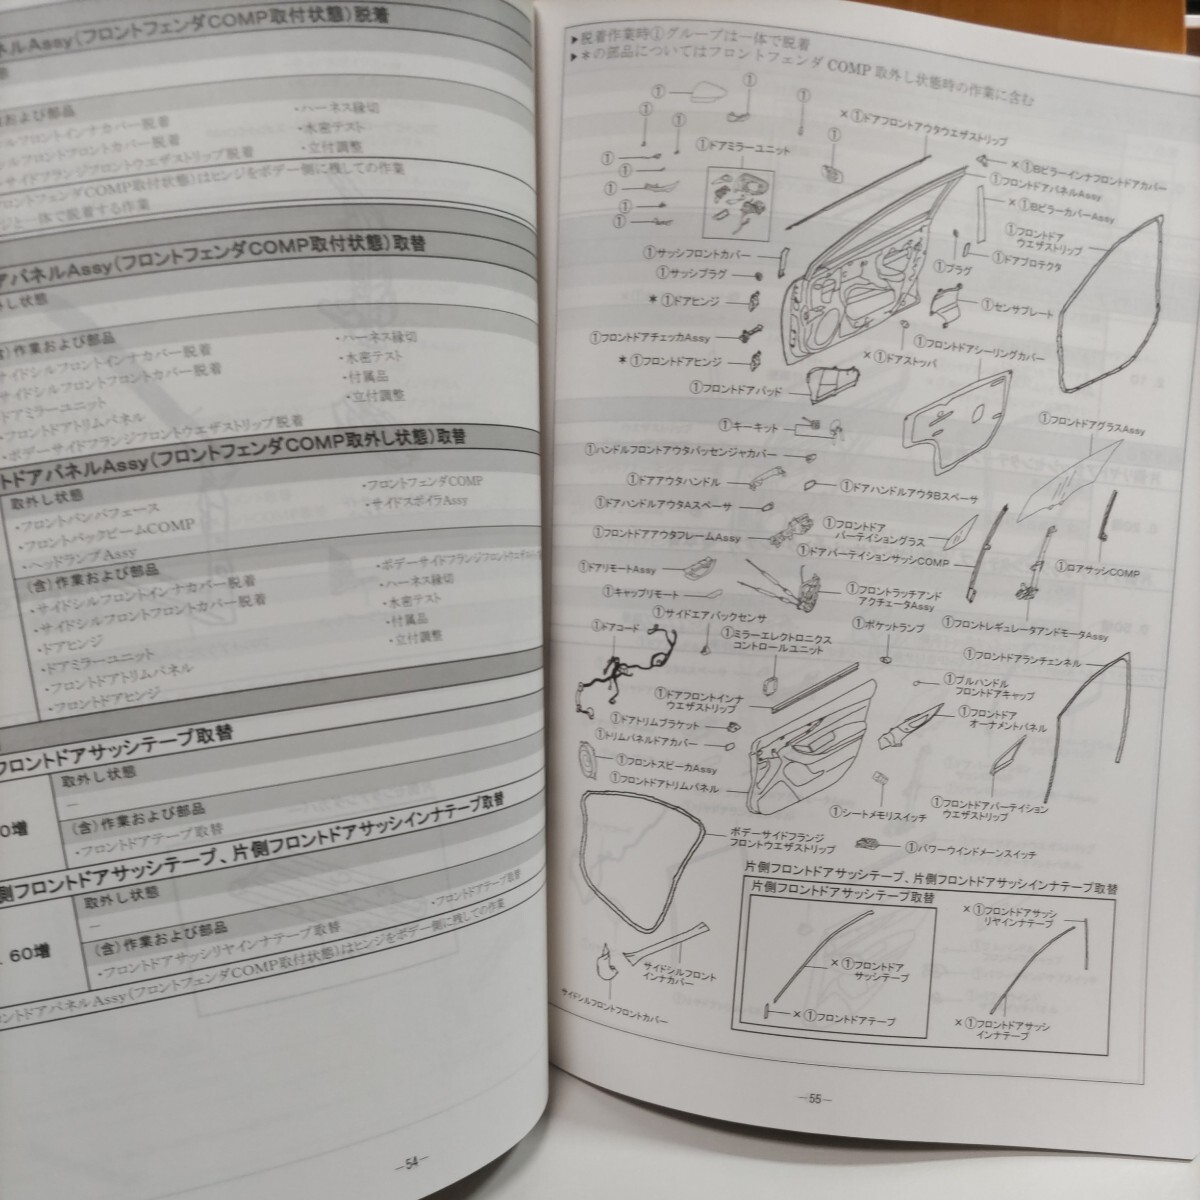 ネルAssy(フロントフェンダCOMP取付状態)脱着
および部品
シルフロントインナカバー脱着
シルフロントフロントカバー脱着
サイドフランジフロントウエザストリップ脱着
・ハーネス縁切
・水密テスト
・立付調整
フロントフェンダCOMP取付状態)はヒンジをボデー側に残しての作業
ジと一体で脱着する作業
アパネルAssy(フロントフェンダCOMP取付状態)取替
外し状態
含)作業および部品
サイドシルフロントインナカバー脱着
サイドシルフロントフロントカバー脱着
ドアミラーユニット
フロントドアトリムパネル
・ボデーサイドフランジフロントウエザストリップ脱着
・ハーネス縁切
・水密テスト
・付属品
・立付調整
トドアパネルAssy(フロントフェンダCOMP取外し状態)取替
取外し状態
・フロントバンパフェース
・フロントバックビームCOMP
・ヘッドランプAssy
・フロントフェンダCOMP
・サイドスポイラAssy
(含)作業および部品
・サイドシルフロントインナカバー脱着
・サイドシルフロントフロントカバー脱着
・ドアヒンジ
・ドアミラーユニット
・フロントドアトリムパネル
・フロントドアヒンジ
・ボデーサイドフランジフロントウエザストリッ
・ハーネス縁切
・水密テスト
・付属品
・立付調整
フロントドアサッシテープ取替
0増
取外し状態
－
(含)作業および部品
・フロントドアテープ取替
側フロントドアサッシテープ、片側フロントドアサッシインナテープ取替
60増
取外し状態
－
(含)作業および部品
・フロントドアサッシリヤインナテープ取替
・フロントドアテープ取替
ントドアパネルAssy(フロントフェンダCOMP取付状態)はヒンジをボデー側に残しての作業
－54－
▶脱着作業時①グループは一体で脱着
▶＊の部品についてはフロントフェンダCOMP取外し状態時の作業に含む
①
①
①
①
①
①
①
①
①
①
①
×①ドアフロントアウタウエザストリップ
①ドアミラーユニット
×①Bピラーインナフロントドアカバー
①フロントドアパネルAssy
×①BピラーカバーAssy
①フロントドア
ウエザストリップ
①サッシフロントカバー
①ドアプロテクタ
①プラグ
①サッシプラグ
＊①ドアヒンジ
①センサプレート
①フロントドアチェッカAssy
×①ドアストッパ
①フロントドアシーリングカバー
＊①フロントドアヒンジ
①フロントドアパッド
①フロントドアグラスAssy
①キーキット
①ハンドルフロントアウタパッセンジャカバー
①ドアアウタハンドル
①ドアハンドルアウタBスペーサ
①ドアハンドルアウタAスペーサ
①フロントドア
パーテイショングラス
①フロントドアアウタフレームAssy
①ドアパーテイションサッシCOMP
①ロアサッシCOMP
①ドアリモートAssy
①キャップリモート
①フロントラッチアンド
アクチェータAssy
①サイドエアバックセンサ
①ポケットランプ
①フロントレギュレータアンドモータAssy
①ドアコード
①ミラーエレクトロニクス
コントロールユニット
①フロントドアランチェンネル
①プルハンドル
フロントドアキャップ
①ドアフロントインナ
ウエザストリップ
①フロントドア
オーナメントパネル
①ドアトリムブラケット
①トリムパネルドアカバー
①フロントスピーカAssy
①フロントドアトリムパネル
①シートメモリスイッチ
①フロントドアパーテイション
ウエザストリップ
ボデーサイドフランジ
フロントウエザストリップ
①パワーウインドメーンスイッチ
片側フロントドアサッシテープ、片側フロントドアサッシインナテープ取替
片側フロントドアサッシテープ取替
×①フロントドアサッシ
リヤインナテープ
×①フロントドア
サッシテープ
×①フロントドアテープ
×①フロントドアサッシ
インナテープ
サイドシルフロント
インナカバー
サイドシルフロントフロントカバー
－55－